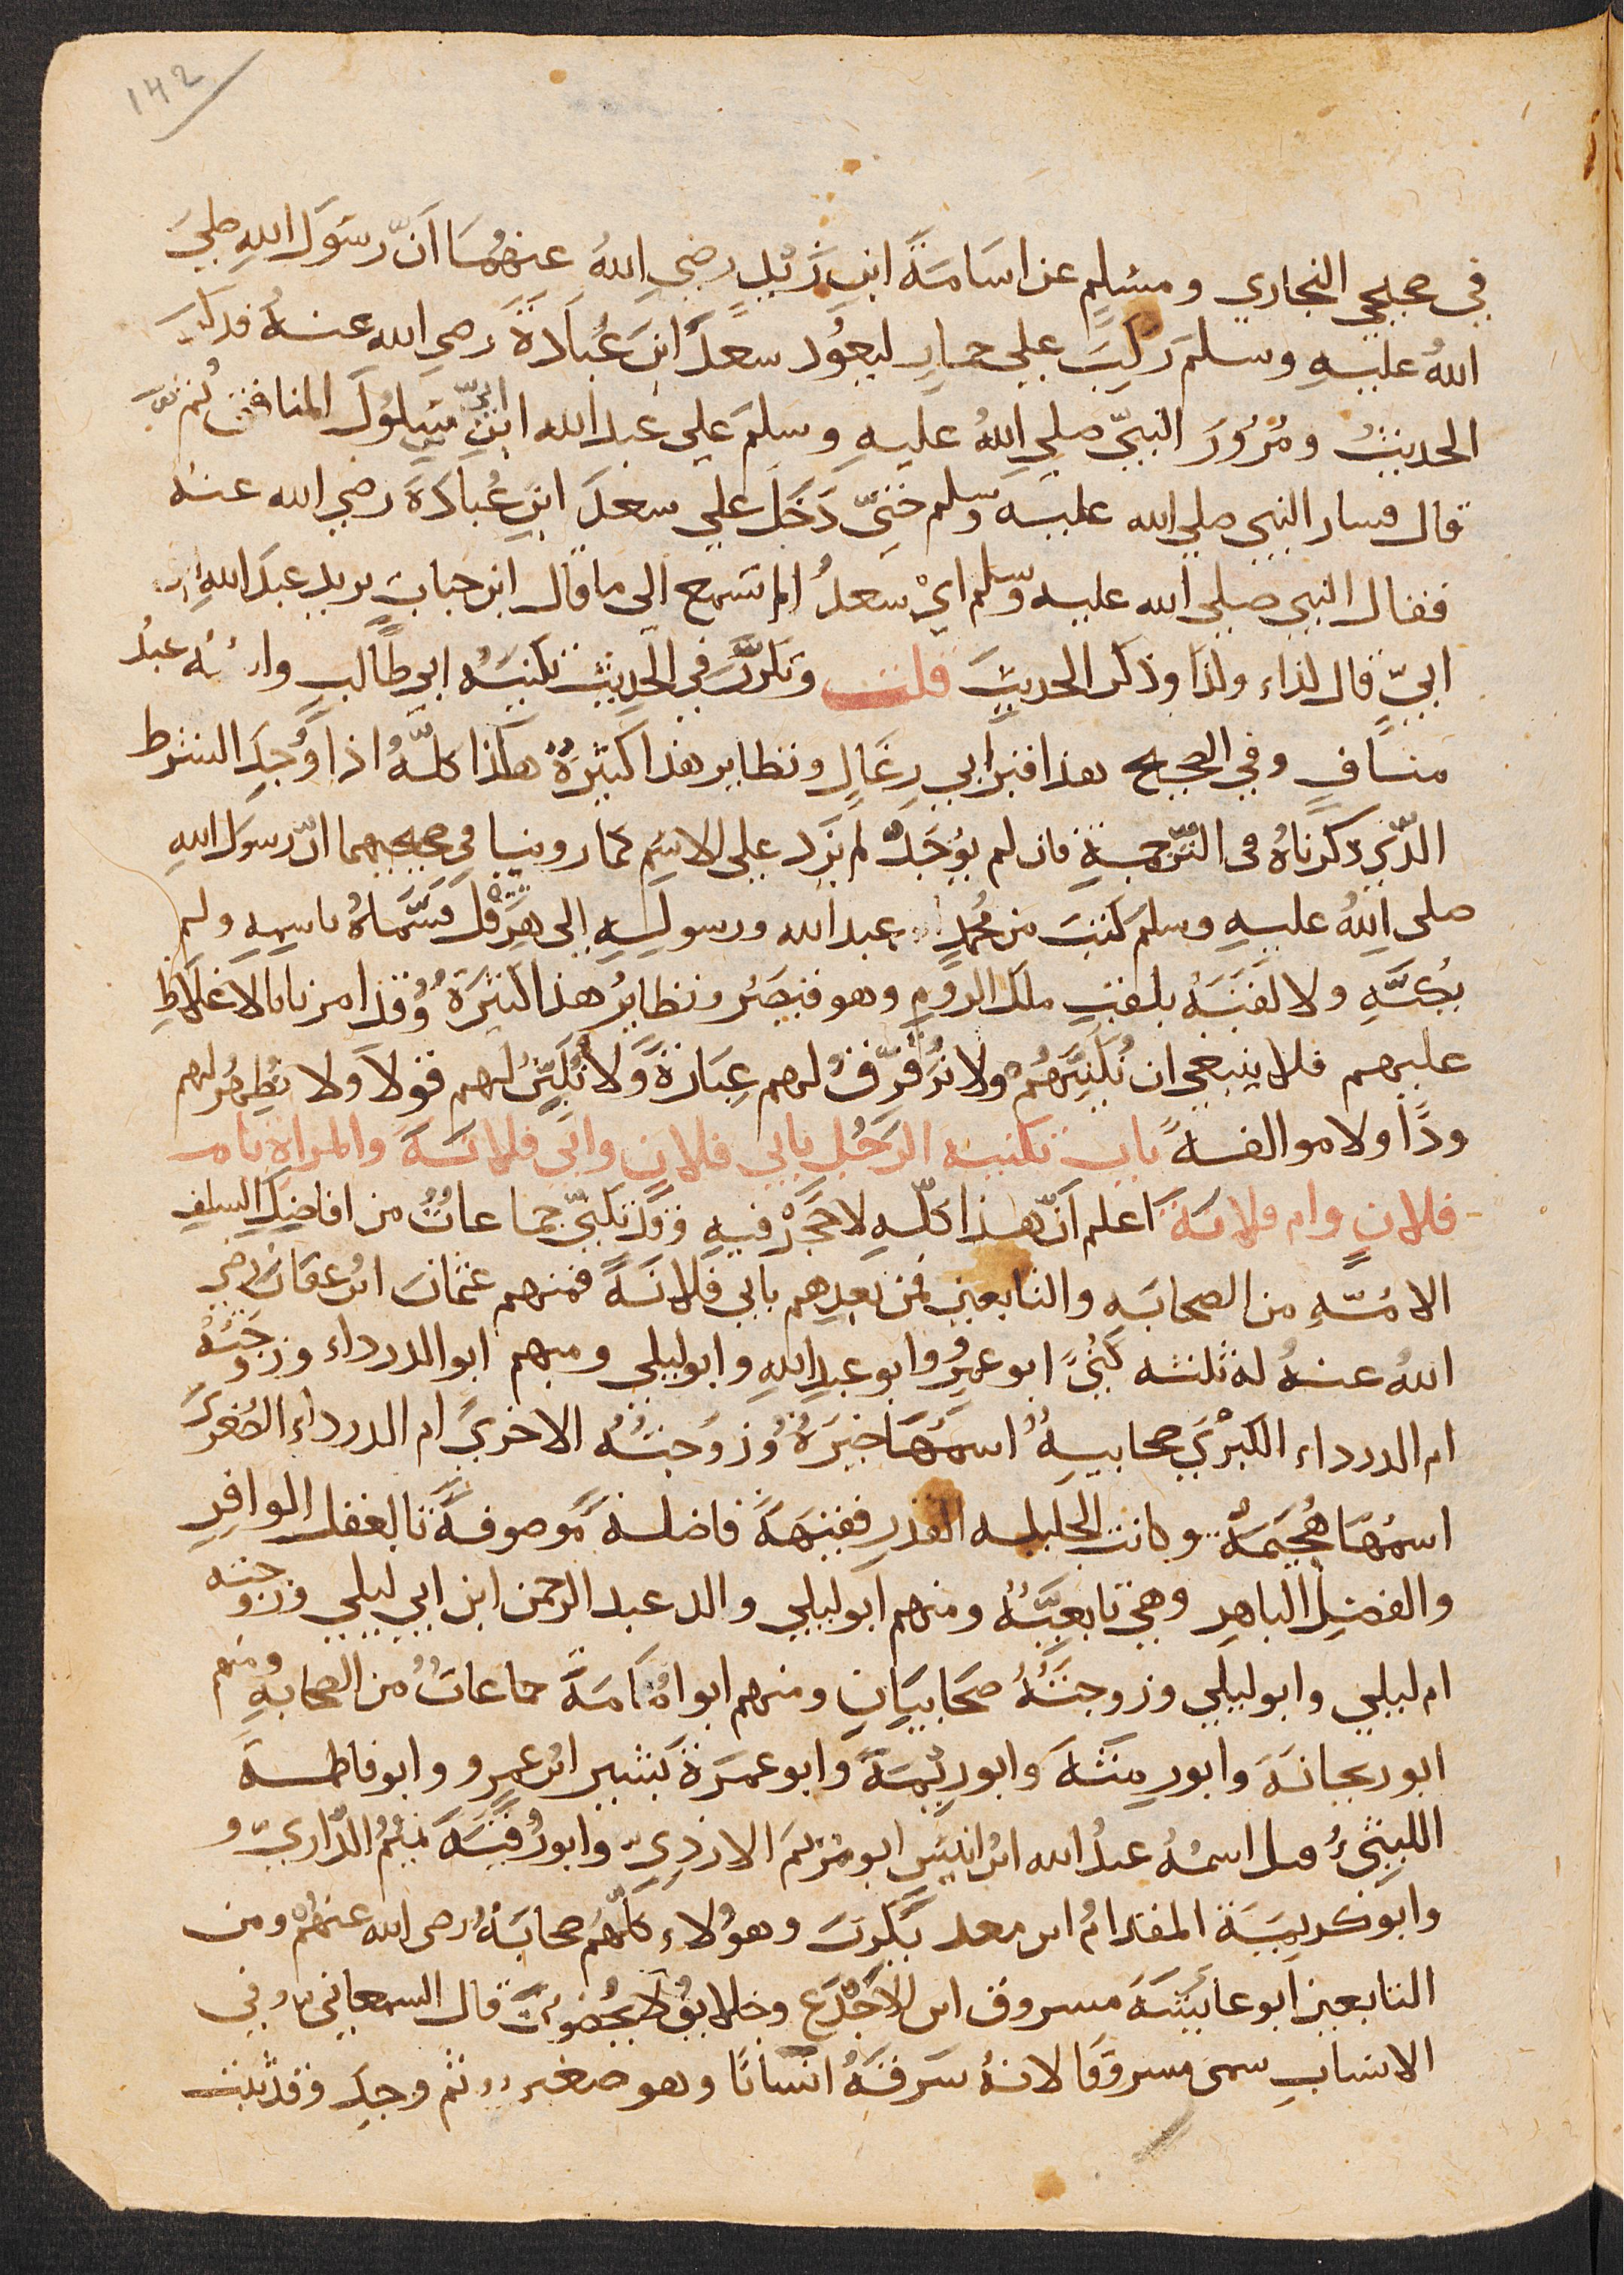 142
في صحيحي البخاري ومسلم عن اسامة ابن زيد رضي الله عنهما ان رسول الله صلي
الله عليه وسلم ركب علي حمار ليعود سعد ابن عبادة رضي الله عنه فذكر
الحديث ومرور النبي صلي الله عليه وسلم علي عبد الله ابن ابي سلول المنافق ثم
قال فسار النبي صلي الله عليه وسلم حتي دخل علي سعد ابن عبادة رضي الله عنه
فقال النبي صلي الله عليه وسلم اي سعد الم تسمع الي ما قال ابو حباب يريد عبد الله ابن
ابي قال لذا ولذا وذكر الحديث قلت وتكرر في الحديث تكنيه ابي طالب واسمه عبد
مناف وفي الصحيح هذا قبر ابي رغال ونظاير هذا كثيرة هكذا كله اذا وجد الشرط
الذي ذكرناه في الترجمة فان لم يوجد لم يزد علي الاسم كما روينا في صحيحيهما ان رسول الله
صلي الله عليه وسلم كتب من محمد عبد الله ورسوله الي هرقل فسماه باسمه ولم
يكنه ولا لقبه بلقب ملك الروم وهو قيصر ونظاير هذا كثيرة وقد امرنا بالاغلاظ
عليهم فلا ينبغي ان نكنيهم ولا نرقق لهم عبارة ولا نلين لهم قولا ولا نظهر لهم
ودا ولا موالفه باب تكنيه الرجل بابي فلان وابي فلانة والمراة بام
فلان وام فلانة اعلم ان هذا كله لا حجر فيه وقد تكني جماعات من افاضل السلف
الامة من الصحابه والتابعين فمن بعدهم بابي فلانة فمنهم عثمان ابن عفان رضي
الله عنه له ثلثه كني ابو عمرو وابو عبد الله وابو ليلي ومنهم ابو الدرداء وزوجته
ام الدرداء الكبري صحابيه اسمها خيرة وزوجته الاخري ام الدرداء الصغري
اسمها هجيمة وكانت الجليله القدر فقيهة فاضلة موصوفة بالعقل الوافر
والفضل الباهر وهي تابعيه ومنهم ابو ليلي والد عبد الرحمن ابن ابي ليلي وزوجته
ام ليلي وابو ليلي وزوجته صحابيان ومنهم ابو امامة جماعات من الصحابه ومنهم
ابو ريحانة وابو رمثة وابو ريمة وابو عمرة بشير ابن عمرو وابو فاطمة
الليثي قيل اسمه عبد الله ابن انيس ابو مريم الازدي وابو رقية تميم الداري و
وابو كريمة المقدام ابن معد يكرب وهولاء كلهم صحابة رضي الله عنهم ومن
التابعين ابو عايشة مسروق ابن الاجدع وخلايق لا يحصون قال السمعاني في
الانساب سمي مسروقا لانه سرقه انسانا وهو صغير ثم وجد وقد ثبت